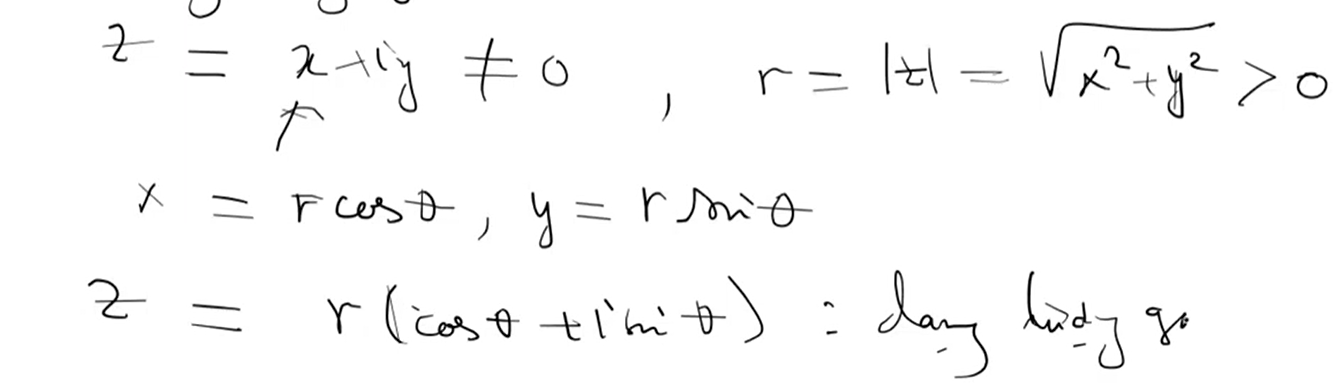 z = x+iy ≠ 0 , r = |z| = √(x²+y²) > 0
x = r cosθ , y = r sinθ
z = r(cosθ + i sinθ) : dạng lượng gi